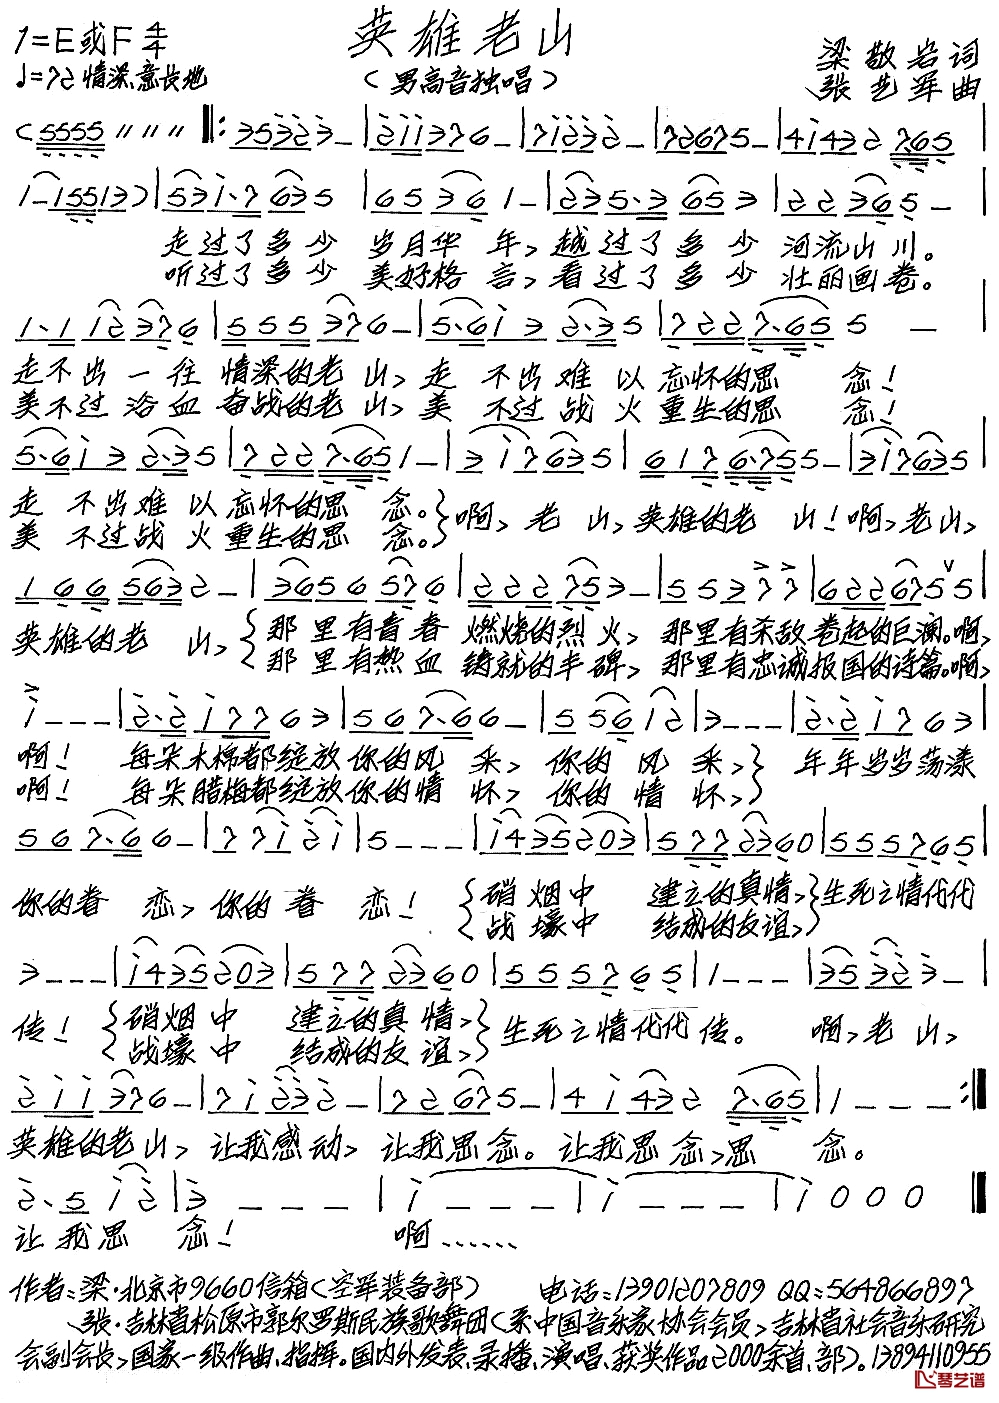 英雄老山
1=E或F 4/4
(男高音独唱)
梁敬岩词
♩=72 情深意长地
张艺军曲
走过了多少 岁月华年,越过了多少 河流山川。
听过了多少 美好格言,看过了多少 壮丽画卷。
走不出一往情深的老山,走不出难以忘怀的思念!
美不过浴血奋战的老山,美不过战火重生的思念!
走不出难以忘怀的思念。}啊,老山,英雄的老山!啊,老山,
美不过战火重生的思念。
英雄的老山,{那里有青春燃烧的烈火,那里有杀敌卷起的巨澜。啊,
那里有热血铸就的丰碑,那里有忠诚报国的诗篇。啊,
啊!每朵木棉都绽放你的风采,你的风采,}年年岁岁荡漾
啊!每朵腊梅都绽放你的情怀,你的情怀,
你的眷恋,你的眷恋!{硝烟中 建立的真情,}生死之情代代
战壕中 结成的友谊,
传!{硝烟中 建立的真情,}生死之情代代传。啊,老山,
战壕中 结成的友谊,
英雄的老山,让我感动,让我思念。让我思念,思念。
让我思念!啊……
作者:梁·北京市9660信箱(空军装备部) 电话:13901207809 QQ:564866897
张·吉林省松原市郭尔罗斯民族歌舞团(系中国音乐家协会会员,吉林省社会音乐研究
会副会长,国家一级作曲、指挥。国内外发表、录播、演唱、获奖作品2000余首、部)。13894110955
琴艺谱